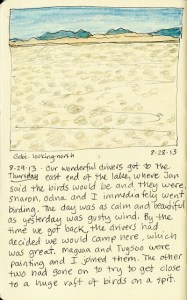 Gobi - looking north 8-28-13
8-29-13 - Our wonderful drivers got to the
Thursday east end of the lake, where Jan
said the birds would be and they were.
Sharon, Odna and I immediately went
birding. The day was as calm and beautiful
as yesterday was gusty wind. By the
time we got back, the drivers had
decided we would camp here, which
was great. Magvaa and Tugsoo were
painting and I joined them. The other
two had gone on to try to get close
to a huge raft of birds on a spit.